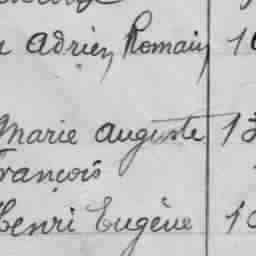 Adrien Romain 1
Marie Auguste 1
François
Henri Eugène 1